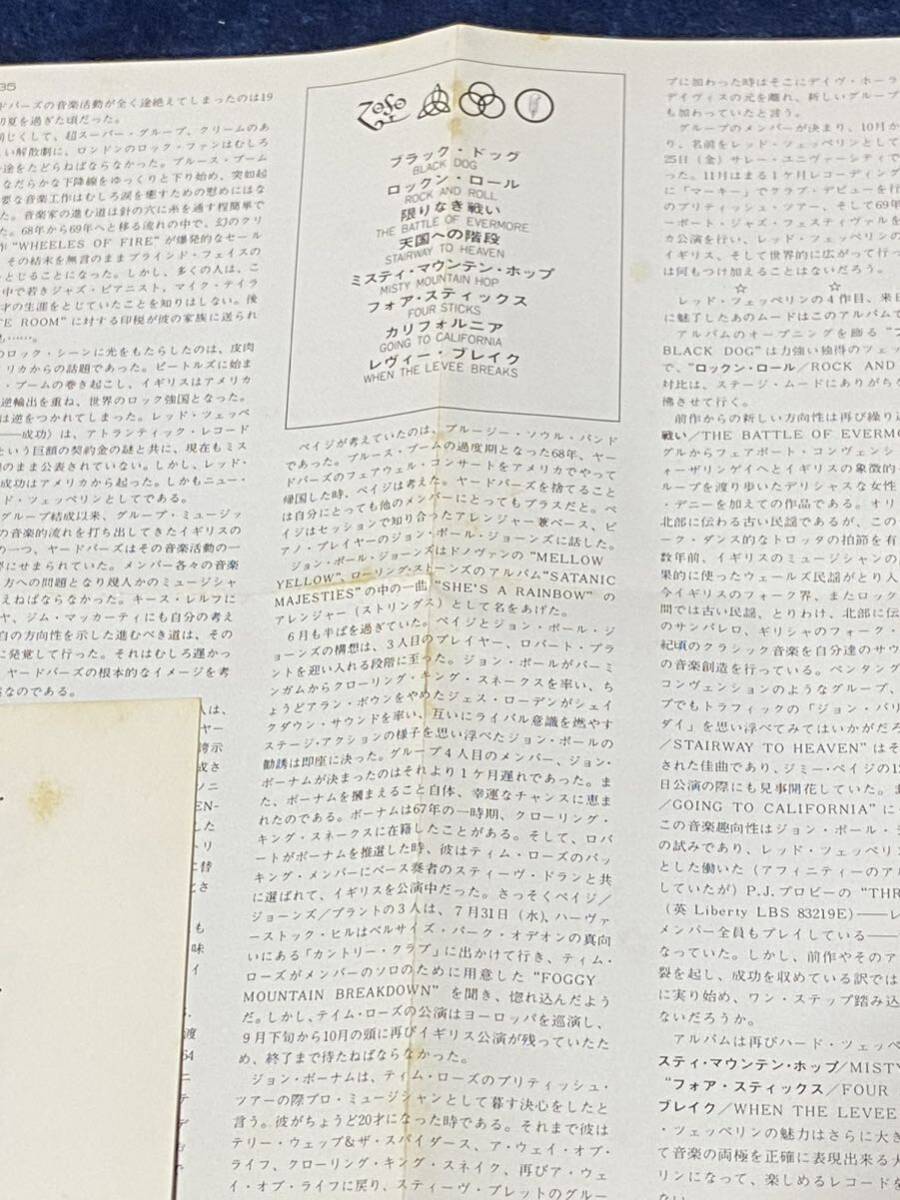 35
ードバーズの音楽活動が全く途絶えてしまったのは19
初夏を過ぎた頃だった。
同じくして、超スーパー・グループ、クリームのあ
い解散劇に、ロンドンのロック・ファンはむしろ
途をたどらねばならなかった。ブルース・ブーム
なだらかな下降線をゆっくりと下り始め、突如起
要な音楽工作はむしろ涙を癒すための慰めにはな
た。音楽家の進む道は針の穴に糸を通す程簡単で
た。68年から69年へと移る流れの中で、幻のクリ
作“WHEELES OF FIRE”が爆発的なセール
その結末を無言のままブラインド・フェイスの
っとじることになった。しかし、多くの人は、こ
中で若きジャズ・ピアニスト、マイク・テイラ
才の生涯をとじていたことを知りはしない。後
TE ROOM”に対する印税が彼の家族に送られ
も……。
のロック・シーンに光をもたらしたのは、皮肉
リカからの話題であった。ビートルズに始ま
・ブームの巻き起こし、イギリスはアメリカ
逆輸出を重ね、世界のロック強国となった。
は逆をつかれてしまった。レッド・ツェッペ
――成功）は、アトランティック・レコード
という巨額の契約金の謎と共に、現在もミス
のまま公表されていない。しかし、レッド・
成功はアメリカから起った。しかもニュー・
ド・ツェッペリンとしてである。
グループ結成以来、グループ・ミュージッ
の音楽的流れを打ち出してきたイギリスの
の一つ、ヤードバーズはその音楽活動の一
界にせまられていた。メンバー各々の音楽
方への問題となり幾人かのミュージシャ
えねばならなかった。キース・レルフに
ヤ、ジム・マッカーティにも自分の考え
自の方向性を示した進むべき道は、その
に発覚して行った。それはむしろ遅かっ
ヤードバーズの根本的なイメージを考
なのである。
人は、
ヤー
誇示
成さ
ソニ
EN-
した
トリ
に替
とさ
も
味
イ
渡
64
ー
テ
デ
ZoSo
ブラック・ドッグ
BLACK DOG
ロックン・ロール
ROCK AND ROLL
限りなき戦い
THE BATTLE OF EVERMORE
天国への階段
STAIRWAY TO HEAVEN
ミスティ・マウンテン・ホップ
MISTY MOUNTAIN HOP
フォア・スティックス
FOUR STICKS
カリフォルニア
GOING TO CALIFORNIA
レヴィー・ブレイク
WHEN THE LEVEE BREAKS
ペイジが考えていたのは、ブルージー・ソウル・バンド
であった。ブルース・ブームの過度期となった68年、ヤー
ドバーズのフェアウェル・コンサートをアメリカでやって
帰国した時、ペイジは考えた。ヤードバーズを捨てること
は自分にとっても他のメンバーにとってもプラスだと。ペ
イジはセッションで知り合ったアレンジャー兼ベース、ピ
アノ・プレイヤーのジョン・ポール・ジョーンズに話した。
ジョン・ポール・ジョーンズはドノヴァンの“MELLOW
YELLOW”、ローリング・ストーンズのアルバム“SATANIC
MAJESTIES”の中の一曲“SHE'S A RAINBOW”の
アレンジャー（ストリングス）として名をあげた。
6月も半ばを過ぎていた。ペイジとジョン・ポール・ジ
ョーンズの構想は、3人目のプレイヤー、ロバート・プラ
ントを迎い入れる段階に至った。ジョン・ポールがバーミ
ンガムからクローリング・キング・スネークスを率い、ち
ょうどアラン・ボウンをやめたジェス・ローデンがシェイ
クダウン・サウンドを率い、互いにライバル意識を燃やす
ステージ・アクションの様子を思い浮べたジョン・ポールの
勧誘は即座に決った。グループ4人目のメンバー、ジョン・
ボーナムが決まったのはそれより1ケ月遅れであった。ま
た、ボーナムを摑まえること自体、幸運なチャンスに恵ま
れたのである。ボーナムは67年の一時期、クローリング・
キング・スネークスに在籍したことがある。そして、ロバ
ートがボーナムを推選した時、彼はティム・ローズのバッ
キング・メンバーにベース奏者のスティーヴ・ドランと共
に選ばれて、イギリスを公演中だった。さっそくペイジ／
ジョーンズ／プラントの3人は、7月31日（水）、ハーヴァ
ーストック・ヒルはベルサイズ・パーク・オデオンの真向
いにある「カントリー・クラブ」に出かけて行き、ティム・
ローズがメンバーのソロのために用意した“FOGGY
MOUNTAIN BREAKDOWN”を聞き、惚れ込んだよう
だ。しかし、テイム・ローズの公演はヨーロッパを巡演し、
9月下旬から10月の頭に再びイギリス公演が残っていたた
め、終了まで待たねばならなかった。
ジョン・ボーナムは、ティム・ローズのブリティッシュ・
ツアーの際プロ・ミュージシャンとして暮す決心をしたと
言う。彼がちょうど20才になった時である。それまで彼は
テリー・ウェッブ&ザ・スパイダース、ア・ウェイ・オブ・
ライフ、クローリング・キング・スネイク、再びア・ウェ
イ・オブ・ライフに戻り、スティーヴ・ブレットのグルー
プに加わった時はそこにデイヴ・ホーラ
デイヴィスの元を離れ、新しいグループ
も加わっていたと言う。
グループのメンバーが決まり、10月か
り、名前をレッド・ツェッペリンとして
25日（金）サレー・ユニヴァーシティで
った。11月はまる1ケ月レコーディング
に「マーキー」でクラブ・デビューを行
のブリティッシュ・ツアー、そして69年
ーポート・ジャズ・フェスティヴァルを
カ公演を行い、レッド・ツェッペリンの
イギリス、そして世界的に広がって行っ
は何もつけ加えることはないだろう。
☆ ☆
レッド・ツェッペリンの4作目、来日
に魅了したあのムードはこのアルバムで
アルバムのオープニングを飾る“ブ
BLACK DOG”は力強い独得のツェッ
で、“ロックン・ロール／ROCK AND
対比は、ステージ・ムードにありがちな
彿させて行く。
前作からの新しい方向性は再び繰り返
戦い／THE BATTLE OF EVERMO
グルからフェアポート・コンヴェンシ
ォーザリンゲイへとイギリスの象徴的
ループを渡り歩いたデリシャスな女性
・デニーを加えての作品である。オリ
北部に伝わる古い民謡であるが、この
ーク・ダンス的なトロッタの拍節を有
数年前、イギリスのミュージシャンの
果的に使ったウェールズ民謡がとり人
今イギリスのフォーク界、またロック
間では古い民謡、とりわけ、北部に伝
のサンパレロ、ギリシャのフォーク・
紀頃のクラシック音楽を自分達のサウ
の音楽創造を行っている。ペンタング
コンヴェンションのようなグループ、
プでもトラフィックの「ジョン・バリ
ダイ」を思い浮べてみてはいかがだろ
／STAIRWAY TO HEAVEN”はそ
された佳曲であり、ジミー・ペイジの12
日公演の際にも見事開花していた。ま
／GOING TO CALIFORNIA”に
この音楽趣向性はジョン・ポール・ジ
の試みであり、レッド・ツェッペリン
とした働いた（アフィニティーのア
していたが）P.J.プロビーの“THR
（英 Liberty LBS 83219E）――レ
メンバー全員もプレイしている――
なっていた。しかし、前作やそのア
裂を起し、成功を収めている訳では
に実り始め、ワン・ステップ踏み込
ないだろうか。
アルバムは再びハード・ツェッペ
スティ・マウンテン・ホップ／MISTY
“フォア・スティックス／FOUR
ブレイク／WHEN THE LEVEE
・ツェッペリンの魅力はさらに大き
て音楽の両極を正確に表現出来る大
リンになって、楽しめるレコードを
ない。